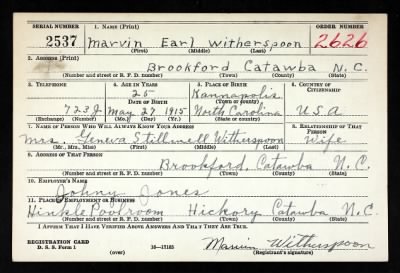 SERIAL NUMBER 1. NAME (Print) ORDER NUMBER
2537 Marvin Earl Witherspoon 2626
(First) (Middle) (Last)
2. ADDRESS (Print)
Brookford Catawba N.C.
(Number and street or R. F. D. number) (Town) (County) (State)
3. TELEPHONE 4. AGE IN YEARS 5. PLACE OF BIRTH 6. COUNTRY OF CITIZENSHIP
25 Kannapolis
DATE OF BIRTH (Town or county)
723J May 27 1915 North Carolina USA
(Exchange) (Number) (Mo.) (Day) (Yr.) (State or country)
7. NAME OF PERSON WHO WILL ALWAYS KNOW YOUR ADDRESS 8. RELATIONSHIP OF THAT PERSON
Mrs. Geneva Stillwell Witherspoon Wife
(Mr., Mrs., Miss) (First) (Middle) (Last)
9. ADDRESS OF THAT PERSON
Brookford, Catawba N.C.
(Number and street or R. F. D. number) (Town) (County) (State)
10. EMPLOYER'S NAME
Johny Jones
11. PLACE OF EMPLOYMENT OR BUSINESS
Hinkle Poolroom Hickory Catawba N.C.
(Number and street or R. F. D. number) (Town) (County) (State)
I AFFIRM THAT I HAVE VERIFIED ABOVE ANSWERS AND THAT THEY ARE TRUE.
REGISTRATION CARD
D. S. S. Form 1 16—17185 Marvin Witherspoon
(over) (Registrant's signature)